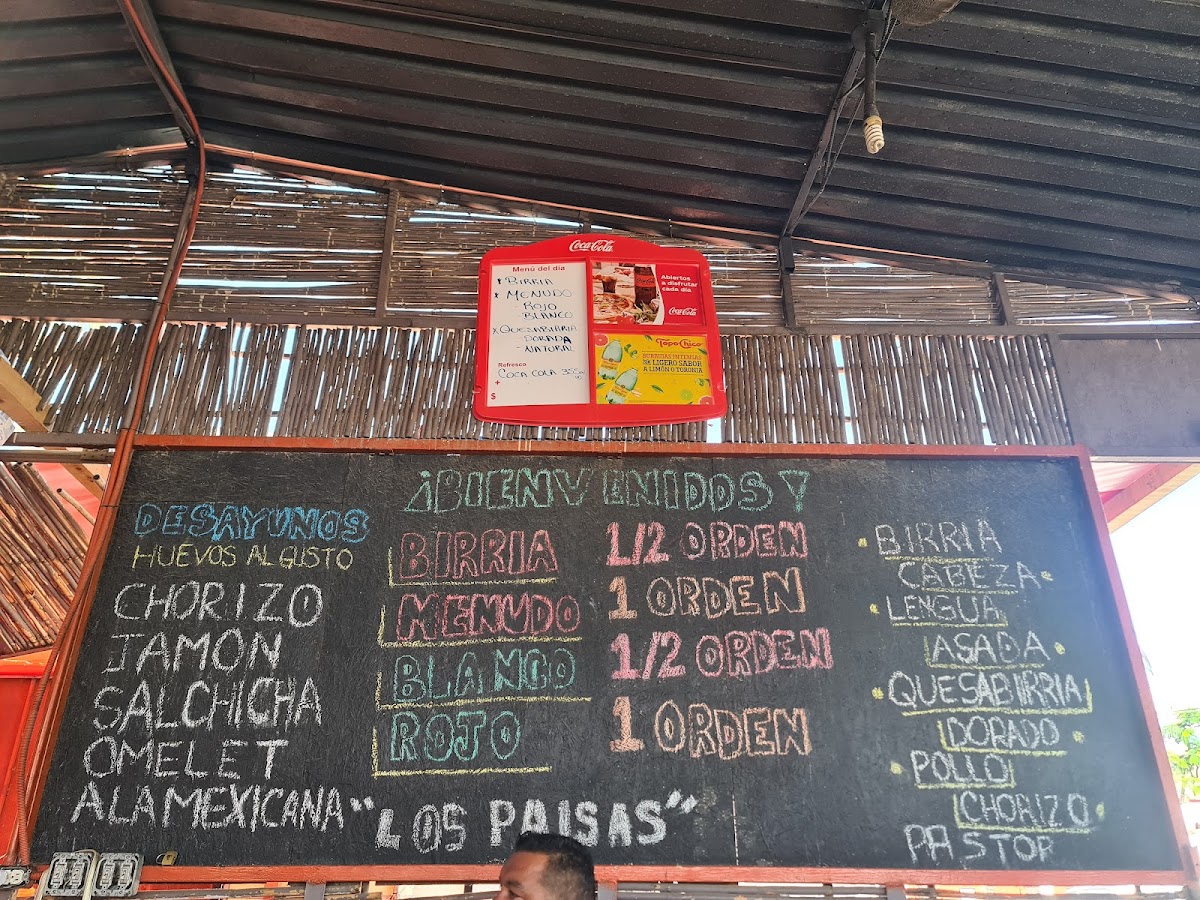 Coca-Cola
Menú del día
BIRRIA
MENUDO
ROJO
BLANCO
QUESABIRRIA
DORADA
-NATURAL
Refresco
COCA COLA 355
+
$
Abiertos
a disfrutar
cada día
Coca-Cola
Topo Chico
BURBUJAS INTENSAS
LIGERO SABOR
A LIMÓN O TORONJA
¡BIENVENIDOS!
DESAYUNOS
HUEVOS AL GUSTO
CHORIZO
JAMÓN
SALCHICHA
OMELET
ALAMEXICANA
BIRRIA 1/2 ORDEN
1 ORDEN
MENUDO
BLANCO 1/2 ORDEN
ROJO 1 ORDEN
"LOS PAISAS"
BIRRIA
CABEZA
LENGUA
ASADA
QUESABIRRIA
DORADO
POLLO
CHORIZO
PASTOR